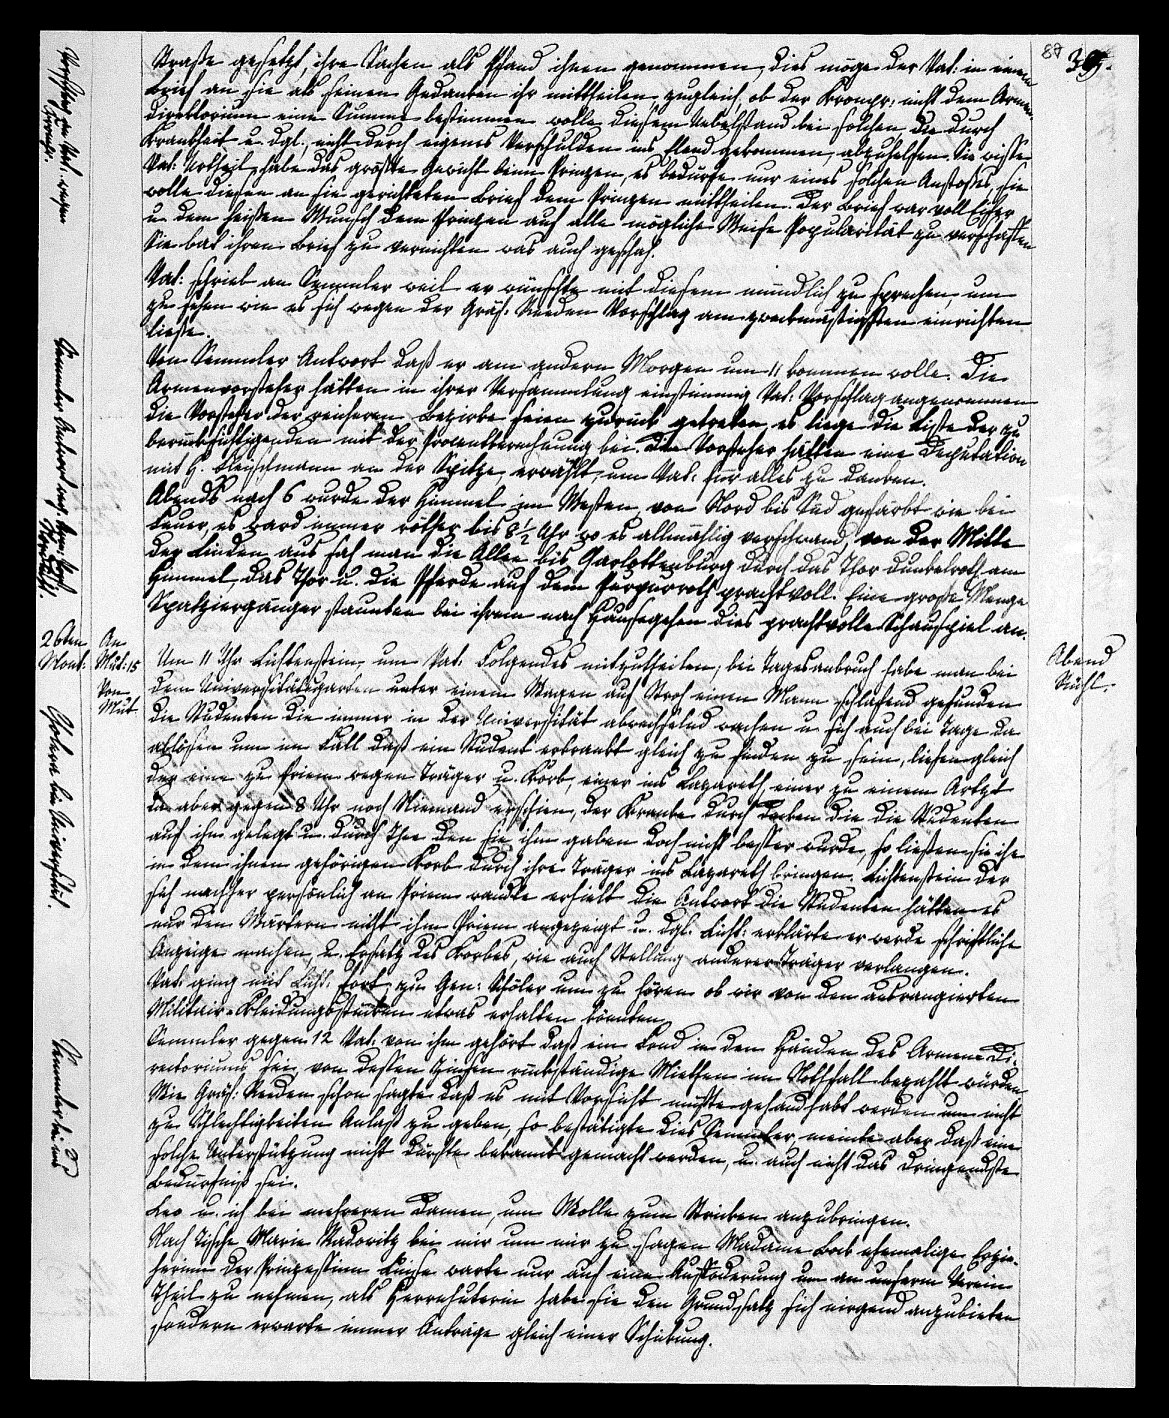 88 39.
Straße gesetzt, ihre Sachen als Pfand ihnen genommen, dies möge der Vat: in einem
Brief an sie als seinen Gedanken ihr mittheilen, zugleich, ob der Kronpr: nicht dem Armen
direktorium eine Summe bestimmen wolle, diesem Uebelstand bei solchen die durch
Krankheit u. dgl., nicht durch eignes Verschulden ins Elend gekommen, abzuhelfen. Sie wisse
Vat: Urtheil habe das größte Gewicht beim Prinzen, es bedürfe nur eines solchen Anstoßes, sie
wolle diesen an sie gerichteten Brief dem Prinzen mittheilen. Der Brief war voll Eifer
u. dem heißen Wunsch dem Prinzen auf alle mögliche Weise Popularität zu verschaffen
Sie bat ihren Brief zu vernichten was auch geschah.
Vat: schrieb an Semmler weil er wünschte mit diesem mündlich zu sprechen um
zu sehen wie es sich wegen der Gräf: Reden Vorschlag am zweckmäßigsten einrichten
ließe.
Von Semmler Antwort daß er am andern Morgen um 11 kommen wolle. Die
Armenvorsteher hätten in ihrer Versammlung einstimmig Vat: Vorschlag angenommen
die Vorsteher der reicheren Bezirke seien zurück getreten, es liege die Liste der zu
berücksichtigenden mit der Procentberechnung bei. Die Vorsteher hätten eine Deputation
mit H. Fleischmann an der Spitze, erwählt, um Vat: für alles zu danken.
Abends nach 6 wurde der Himmel im Westen, von Nord bis Süd gefärbt wie bei
Feuer, es ward immer röther bis 8 1/2 Uhr wo es allmählig verschwand, von der Mitte
der Linden aus sah man die Allee bis Charlottenburg durch das Thor dunkelroth am
Himmel, das Thor u. die Pferde auf dem Purpurroth prachtvoll. Eine große Menge
Spatziergänger staunten bei ihrem nach Hausegehen dies prachtvolle Schauspiel an.
26sten Mont: An Mut: 15 Von Mut
Abend Kühl.
Um 11 Uhr Lichtenstein, um Vat: Folgendes mitzutheilen, bei Tagesanbruch habe man bei
dem Universitätsgarten unter einem Wagen auf Stroh einen Mann schlafend gefunden
die Studenten die immer in der Universität abwechselnd wachen u. sich auch bei Tage da
ablösen um im Fall daß ein Student erkrankt gleich zu finden zu sein, liefen gleich
der eine zu Priem wegen Träger u. Korb, einer ins Lazareth, einer zu einem Artzt
da aber gegen 8 Uhr noch Niemand erschien, der Kranke durch Decken die die Studenten
auf ihn gelegt u. durch Thee den sie ihm gaben doch nicht besser wurde, so ließen sie ihn
in dem ihnen gehörigen Korb durch ihre Träger ins Lazareth bringen. Lichtenstein der
sich nachher persönlich an Priem wandte erhielt die Antwort die Studenten hätten es
nur den Wärtern nicht ihm Priem angezeigt u. dgl. Licht: erklärte er werde schriftliche
Anzeige machen, u. Ersatz des Korbes, wie auch Stellung anderer Träger verlangen.
Vat: ging mit Licht: fort, zu Gen: Schöler um zu hören ob wir von den ausrangierten
Militair-Kleidungsstücken etwas erhalten könnten.
Semmler gegen 12 Vat: von ihm gehört daß ein Fond in den Händen des Armen-Di-
rectoriums sei, von dessen Zinsen rückständige Miethen im Nothfall bezahlt würden
Wie Gräf: Reden schon sagte daß es mit Vorsicht müßte gehandhabt werden um nicht
zu Schlechtigkeiten Anlaß zu geben, so bestätigte dies Semmler, meinte aber daß eine
solche Unterstützung nicht dürfte bekannt gemacht werden, u. auch nicht das dringendste
Bedürfniß sei.
Leo u. ich bei mehreren Damen, um Wolle zum Stricken anzubringen.
Nach Tische Marie Radowitz bei mir um mir zu sagen Madame Bock ehemalige Erzie-
herinn der Prinzessinn Luise warte nur auf eine Aufforderung um an unserm Verein
Theil zu nehmen, als Herrnhuterin habe sie den Grundsatz sich nirgend anzubieten
sondern erwarte immer Anträge gleich einer Schickung.
Semmler bei uns